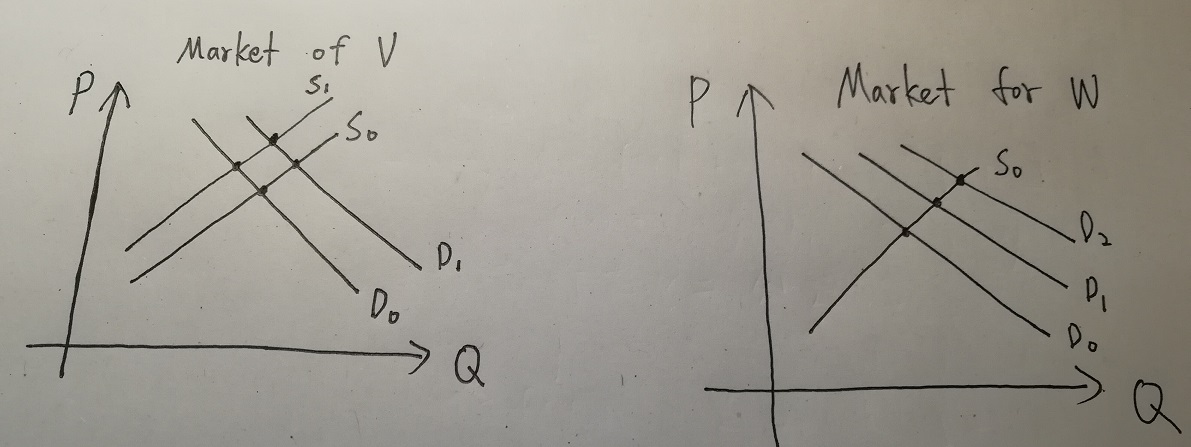 Market of V
P
S₁
S₀
D₁
D₀
Q
Market for W
P
S₀
D₂
D₁
D₀
Q